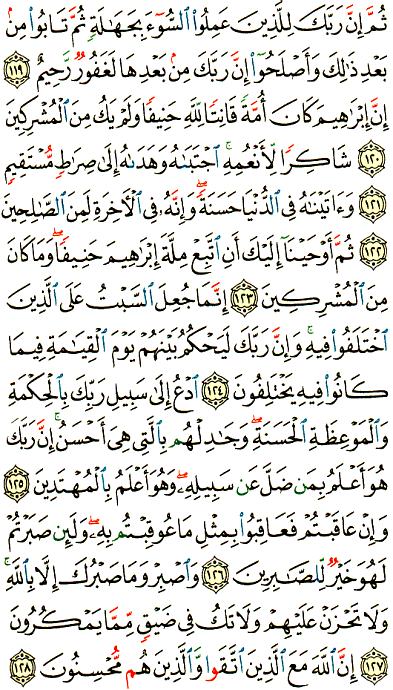 ثُمَّ إِنَّ رَبَّكَ لِلَّذِينَ عَمِلُوا۟ ٱلسُّوٓءَ بِجَهَٰلَةٍ ثُمَّ تَابُوا۟ مِنۢ
بَعْدِ ذَٰلِكَ وَأَصْلَحُوٓا۟ إِنَّ رَبَّكَ مِنۢ بَعْدِهَا لَغَفُورٌ رَّحِيمٌ ١١٩
إِنَّ إِبْرَٰهِيمَ كَانَ أُمَّةً قَانِتًا لِّلَّهِ حَنِيفًا وَلَمْ يَكُ مِنَ ٱلْمُشْرِكِينَ
١٢٠ شَاكِرًا لِّأَنْعُمِهِ ۚ ٱجْتَبَىٰهُ وَهَدَىٰهُ إِلَىٰ صِرَٰطٍ مُّسْتَقِيمٍ
١٢١ وَءَاتَيْنَٰهُ فِى ٱلدُّنْيَا حَسَنَةً ۖ وَإِنَّهُۥ فِى ٱلْءَاخِرَةِ لَمِنَ ٱلصَّٰلِحِينَ
١٢٢ ثُمَّ أَوْحَيْنَآ إِلَيْكَ أَنِ ٱتَّبِعْ مِلَّةَ إِبْرَٰهِيمَ حَنِيفًا ۖ وَمَا كَانَ
مِنَ ٱلْمُشْرِكِينَ ١٢٣ إِنَّمَا جُعِلَ ٱلسَّبْتُ عَلَى ٱلَّذِينَ
ٱخْتَلَفُوا۟ فِيهِ ۚ وَإِنَّ رَبَّكَ لَيَحْكُمُ بَيْنَهُمْ يَوْمَ ٱلْقِيَٰمَةِ فِيمَا
كَانُوا۟ فِيهِ يَخْتَلِفُونَ ١٢٤ ٱدْعُ إِلَىٰ سَبِيلِ رَبِّكَ بِٱلْحِكْمَةِ
وَٱلْمَوْعِظَةِ ٱلْحَسَنَةِ ۖ وَجَٰدِلْهُم بِٱلَّتِى هِىَ أَحْسَنُ ۚ إِنَّ رَبَّكَ
هُوَ أَعْلَمُ بِمَن ضَلَّ عَن سَبِيلِهِۦ ۖ وَهُوَ أَعْلَمُ بِٱلْمُهْتَدِينَ ١٢٥
وَإِنْ عَاقَبْتُمْ فَعَاقِبُوا۟ بِمِثْلِ مَا عُوقِبْتُم بِهِۦ ۖ وَلَئِن صَبَرْتُمْ
لَهُوَ خَيْرٌ لِّلصَّٰبِرِينَ ١٢٦ وَٱصْبِرْ وَمَا صَبْرُكَ إِلَّا بِٱللَّهِ ۚ
وَلَا تَحْزَنْ عَلَيْهِمْ وَلَا تَكُ فِى ضَيْقٍ مِّمَّا يَمْكُرُونَ
١٢٧ إِنَّ ٱللَّهَ مَعَ ٱلَّذِينَ ٱتَّقَوا۟ وَّٱلَّذِينَ هُم مُّحْسِنُونَ ١٢٨